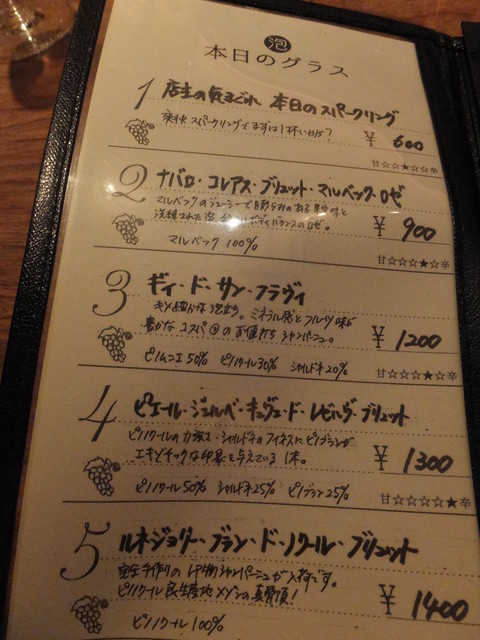 泡
本日のグラス
1 店主の気まぐれ 本日のスパークリング
爽快スパークリングでまずは1杯いかが?
¥ 600
甘☆☆★☆☆辛
2 ナバロ・コレアス・ブリュット・マルベック・ロゼ
マルベックのジューシーで
洗練された泡
バランスのロゼ。
¥ 900
マルベック 100%
甘☆☆☆★☆辛
3 ギィ・ド・サン・フラヴィ
キメ細かな泡立ち。ミネラル感とフルーツ味
豊かなコスパ◎のお値打ちシャンパーニュ。
¥ 1200
ピノムニエ50% ピノノワール30% シャルドネ20%
甘☆☆☆★☆辛
4 ピエール・ジェルベ・キュヴェ・ド・レゼルヴ・ブリュット
ピノノワールの力強さ・シャルドネのフィネスにピノブランが
エキゾチックな印象を与えている1本。
¥ 1300
ピノノワール50% シャルドネ25% ピノブラン25%
甘☆☆☆☆★辛
5 ルネジョリー・ブラン・ド・ノワール・ブリュット
完全手作りの
シャンパーニュが入荷です。
ピノノワール
の真骨頂!
¥ 1400
ピノノワール 100%